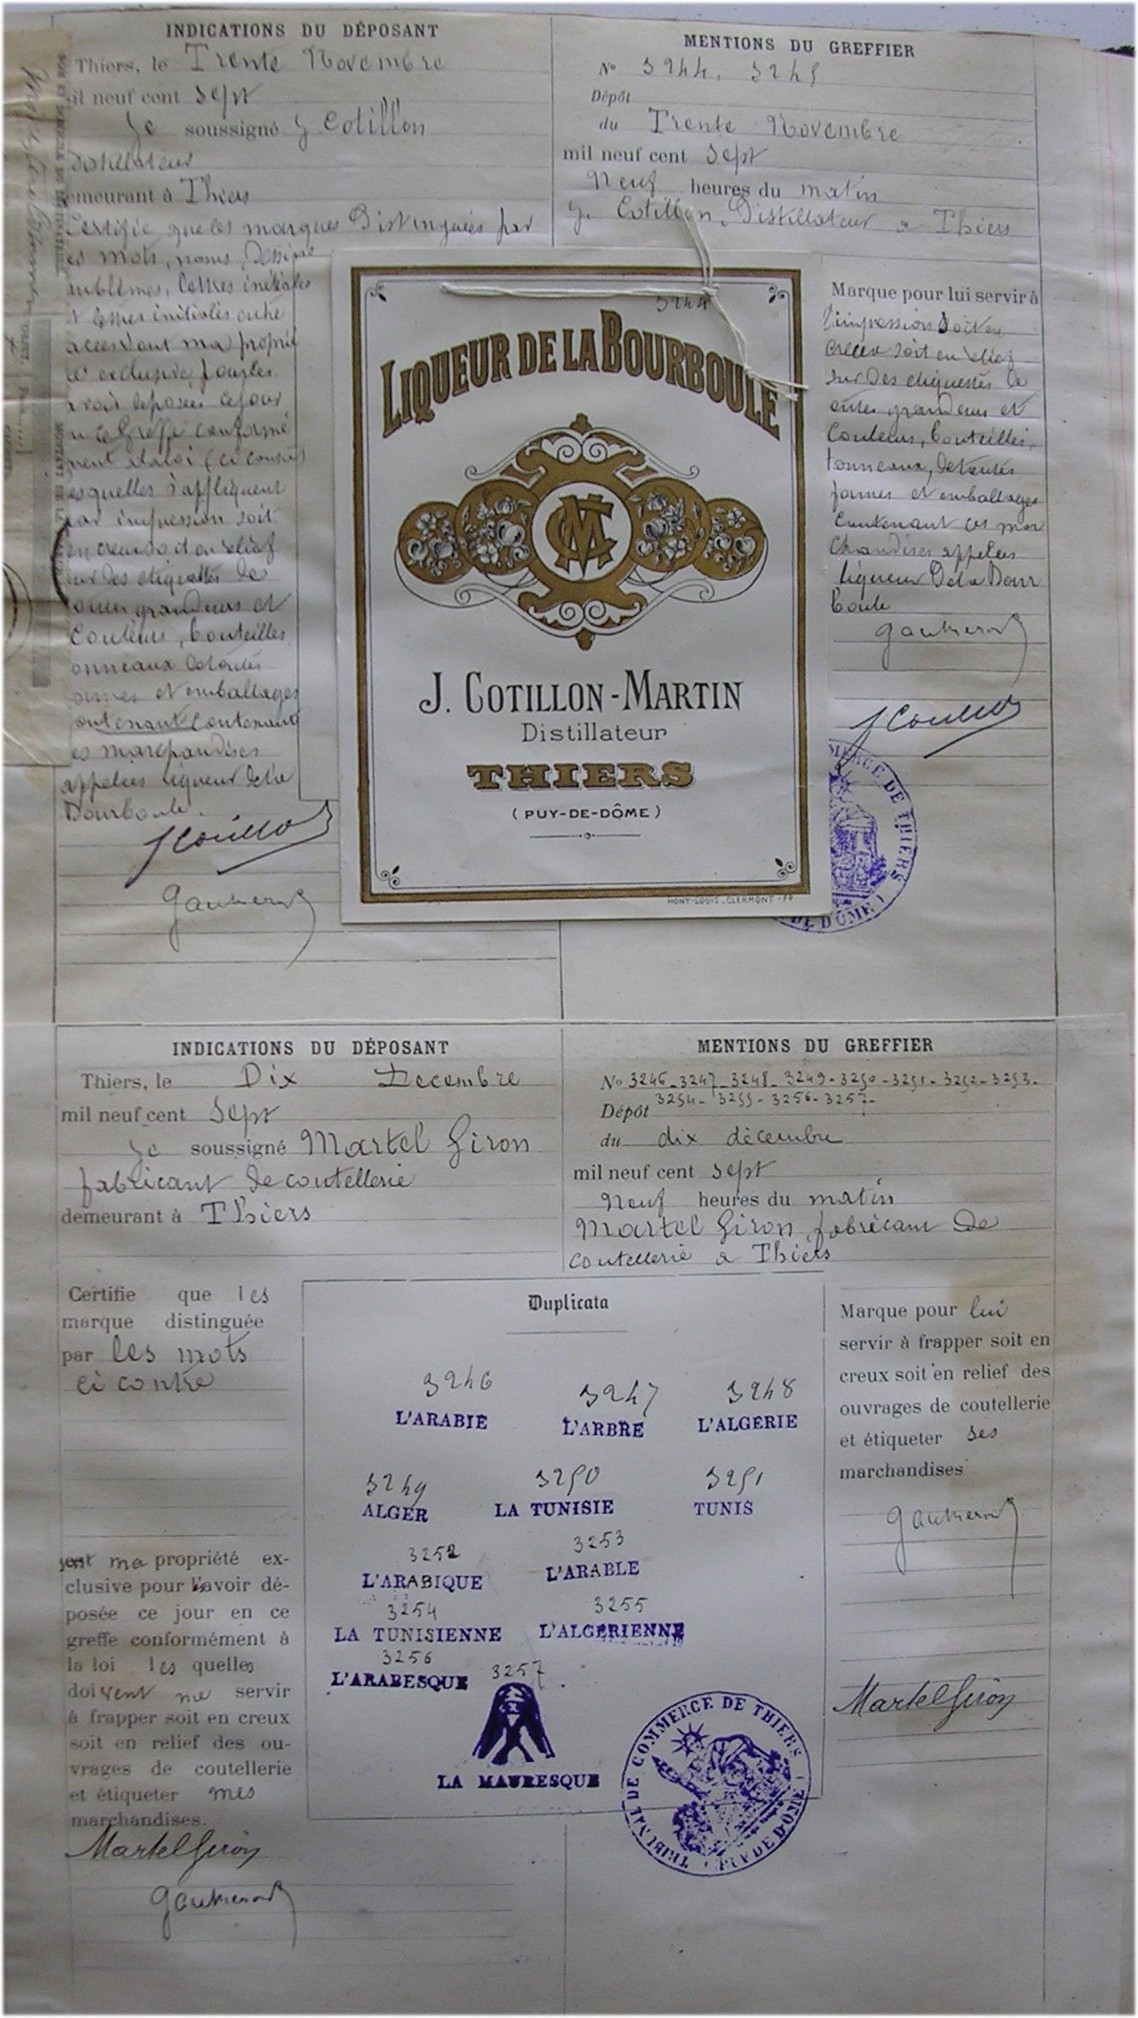 INDICATIONS DU DÉPOSANT
Thiers, le Trente Novembre
mil neuf cent sept
Je soussigné J Cotillon
Distillateur
demeurant à Thiers
Certifie que les marques Distinguées par
les mots, noms,
emblêmes, lettres initiales
et
ma proprié
té exclusive pour les
avoir déposées ce jour
au Greffe conformé
ment à la loi (ci contre)
lesquelles s'appliquent
par impression soit
en creux soit en relief
sur des etiquettes de
toutes grandeurs et
Couleurs, bouteilles
tonneaux de toutes
formes et emballages
contenant contenant
les marchandises
appelées liqueur de la
Bourboule.
MENTIONS DU GREFFIER
No 3244, 3245
Dépôt
du Trente Novembre
mil neuf cent sept
Neuf heures du matin
J. Cotillon, Distillateur a Thiers
3244
LIQUEUR DE LA BOURBOULE
MC
J. COTILLON-MARTIN
Distillateur
THIERS
(PUY-DE-DÔME)
MONT-LOUIS. CLERMONT-FD
Marque pour lui servir à
l'impression soit en
creux soit en relief
sur des etiquettes de
toutes grandeurs et
Couleurs, bouteilles,
tonneaux, de toutes
formes et emballages
contenant ces mar
chandises appelées
liqueur De la Bour
boule
INDICATIONS DU DÉPOSANT
Thiers, le Dix Decembre
mil neuf cent sept
Je soussigné Martel Giron
fabricant de coutellerie
demeurant à Thiers
MENTIONS DU GREFFIER
No 3246-3247-3248-3249-3250-3251-3252-3253-
3254-3255-3256-3257-
Dépôt
du dix décembre
mil neuf cent sept
Neuf heures du matin
Martel Giron, fabricant de
coutellerie a Thiers
Certifie que les
marque distinguée
par les mots
ci contre
sont ma propriété ex-
clusive pour l'avoir dé-
posée ce jour en ce
greffe conformément à
la loi les quelles
doivent me servir
à frapper soit en creux
soit en relief des ou-
vrages de coutellerie
et étiqueter mes
marchandises.
Martel Giron
Duplicata
3246 3247 3248
L'ARABIE L'ARBRE L'ALGERIE
3249 3250 3251
ALGER LA TUNISIE TUNIS
3252 3253
L'ARABIQUE L'ARABLE
3254 3255
LA TUNISIENNE L'ALGERIENNE
3256 3257
L'ARABESQUE
LA MAURESQUE
TRIBUNAL DE COMMERCE DE THIERS (PUY DE DOME)
Marque pour lui
servir à frapper soit en
creux soit en relief des
ouvrages de coutellerie
et étiqueter ses
marchandises
Martel Giron